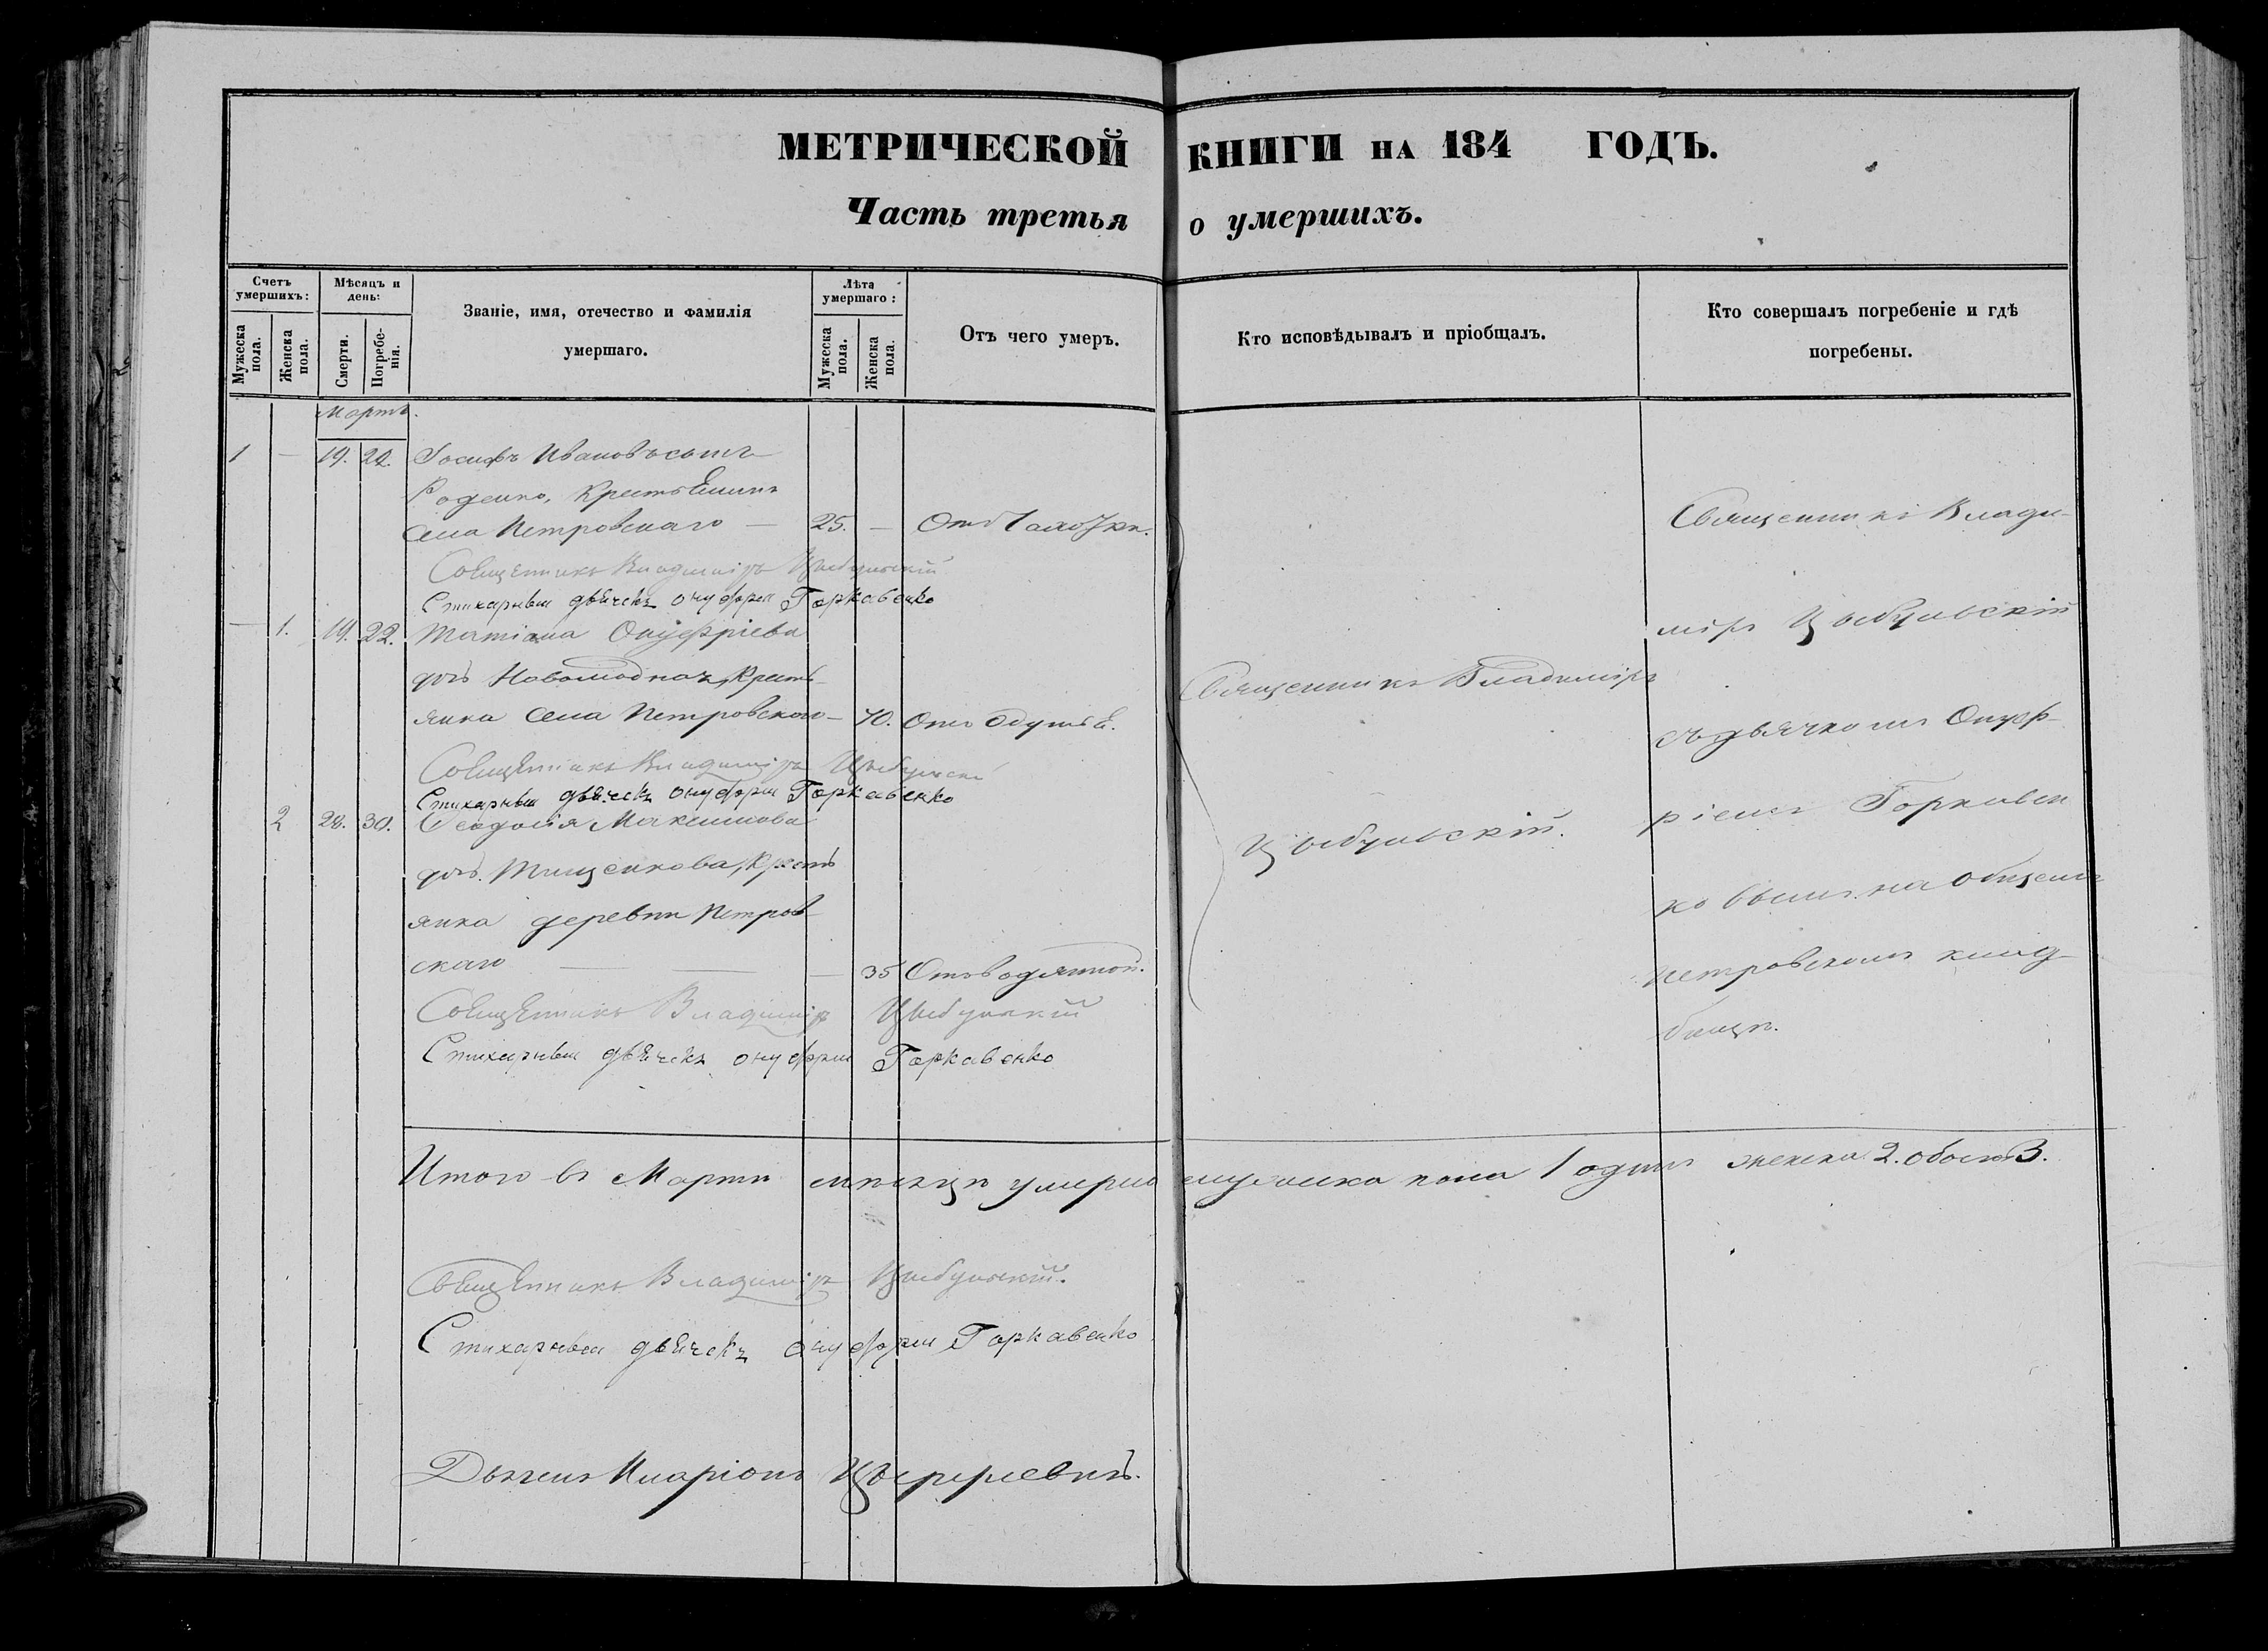 МЕТРИЧЕСКОЙ КНИГИ НА 184 ГОДЪ.
Часть третья о умершихъ.
Счетъ умершихъ:
Мужеска пола.
Женска пола.
Мѣсяцъ и день:
Смерти.
Погребенія.
Званіе, имя, отечество и фамилія умершаго.
Лѣта умершаго:
Мужеска пола.
Женска пола.
Отъ чего умеръ.
Кто исповѣдывалъ и пріобщалъ.
Кто совершалъ погребеніе и гдѣ погребены.
Мартъ.
1 — 19. 22. Іосифъ Ивановъ сынъ
Роденко, Крестьянинъ
села Петровскаго — 25. — Отъ
Священникъ Владиміръ Цыбульскій
Стихарный дьячекъ Онуфрій Горкавенко
— 1. 19. 22. Татіана Онуфріева
дочь Крестъ-
янка села Петровскаго — 70. Отъ
Священникъ Владиміръ Цыбульскій
Стихарный дьячекъ Онуфрій Горкавенко
2 28. 30. Ѳеодосія Максимова
дочь. Тищенкова, Кресть
янка деревни Петров-
скаго — — — 35 Отъ водянной.
Священникъ Владиміръ Цыбульскій
Стихарный дьячекъ Онуфрій Горкавенко
Священникъ Владиміръ
Цыбульскій.
Священникъ Влади-
міръ Цыбульскій
съ дьячкомъ Онуф-
ріемъ Горкавен
ко на общемъ
Петровскомъ клад-
бищѣ.
Итого въ Мартѣ мѣсяцѣ умерло мужеска пола 1 одинъ женска 2. обоего 3.
Священникъ Владиміръ Цыбульскій.
Стихарный дьячекъ Онуфрій Горкавенко
Иларіонъ